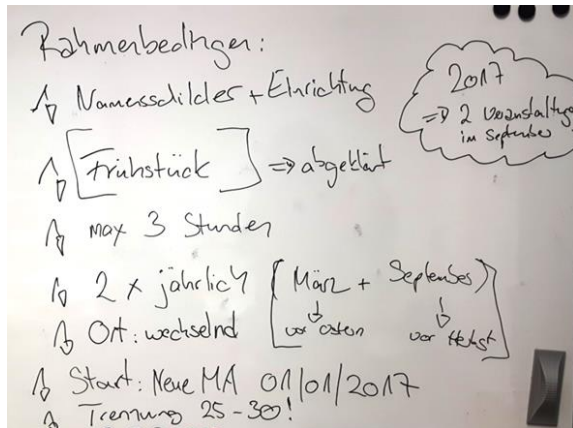 Rahmenbedingen:
Namensschilder + Einrichtung
[Frühstück] => abgeklärt
max 3 Stunden
2 x jährlich (März + September)
Ort: wechselnd
vor Ostern vor Herbst
Start: Neue MA 01/01/2017
Trennung 25-30!
2017
=> 2 Veranstaltung
im September